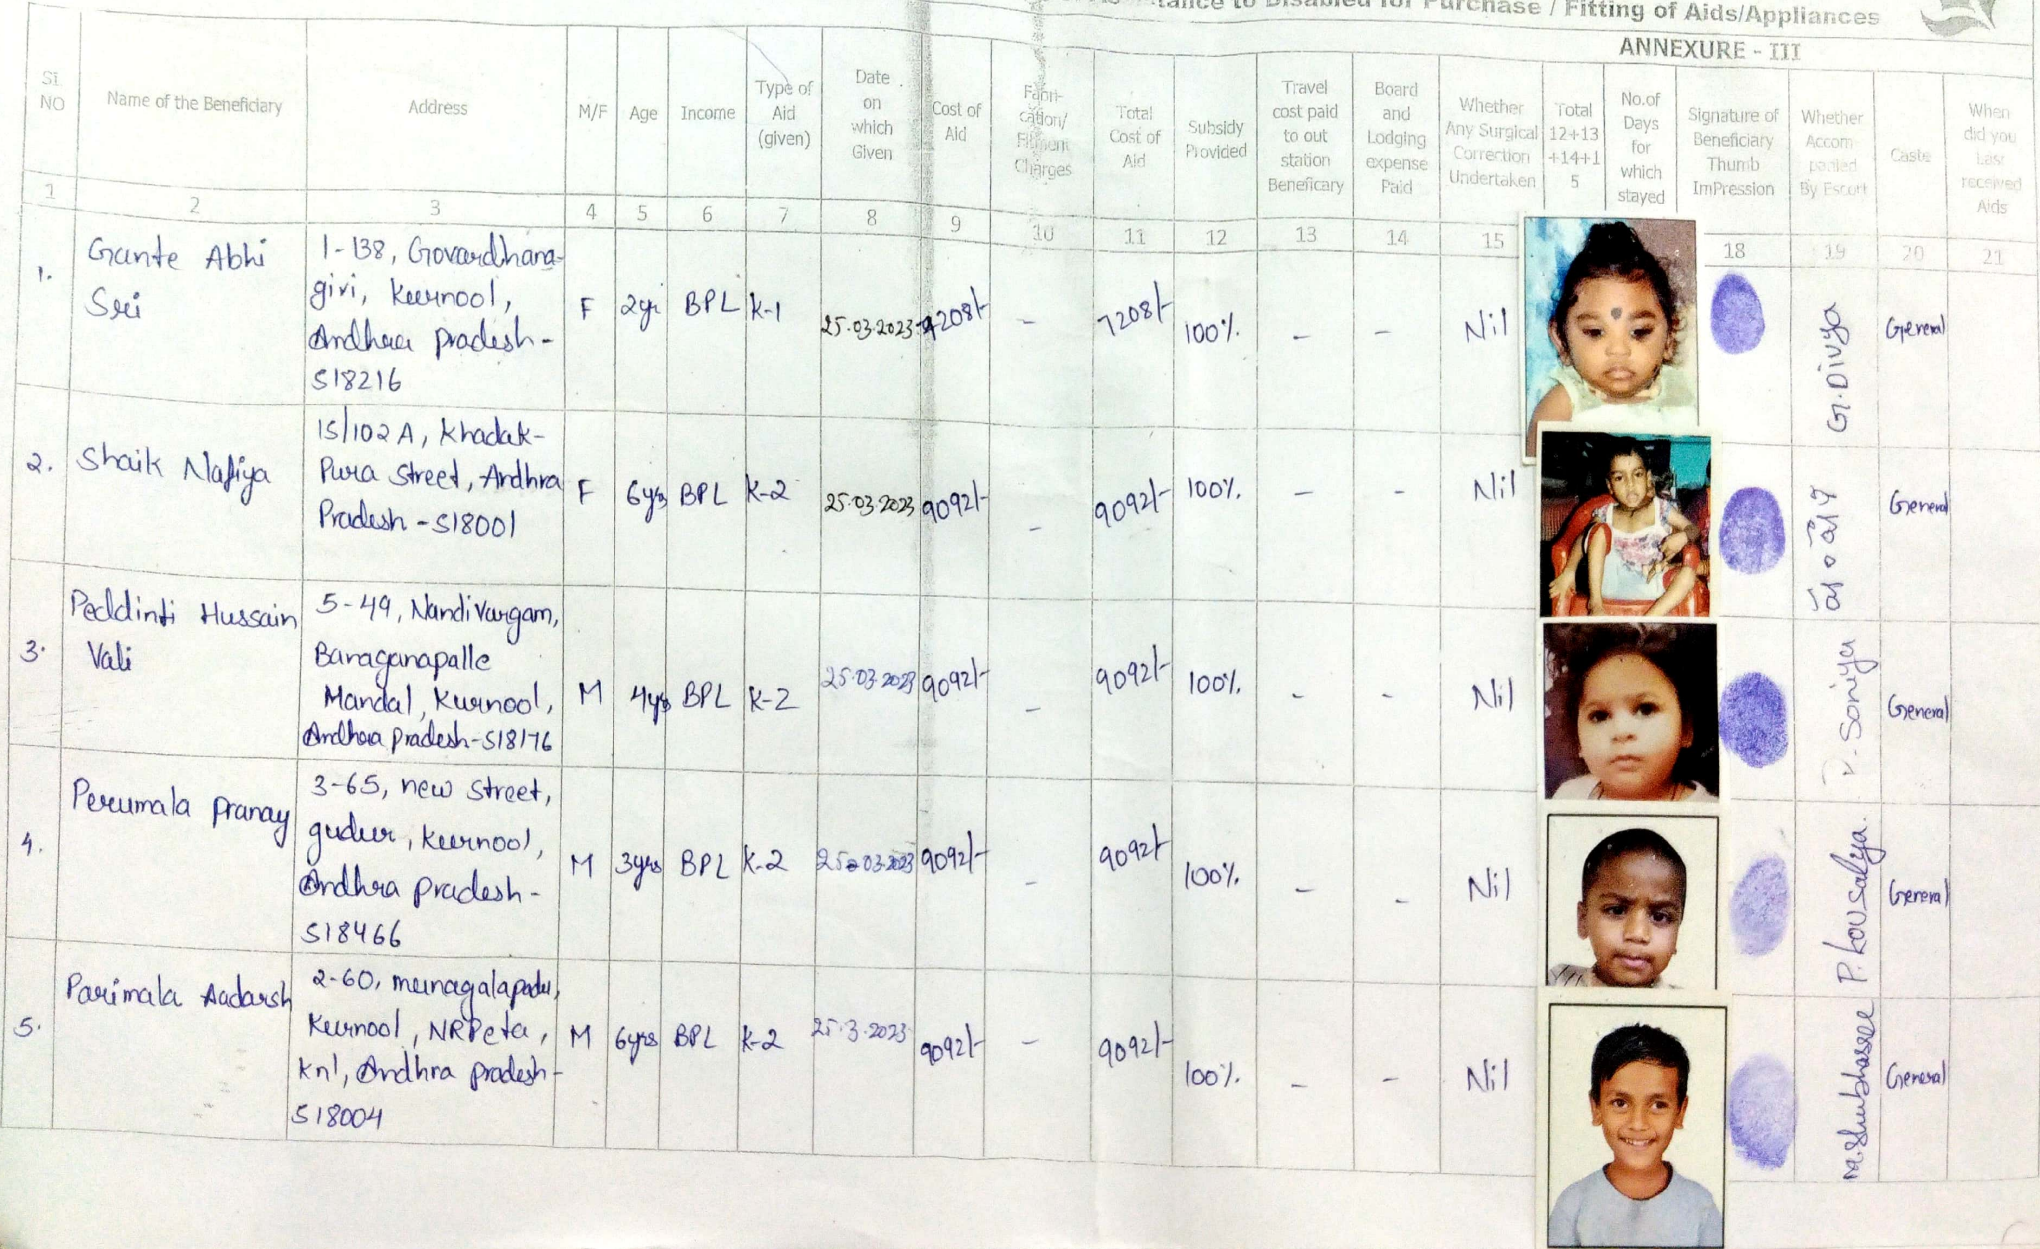 to Disabled for Purchase / Fitting of Aids/Appliances
ANNEXURE - III
Sl. NO
Name of the Beneficiary
Address
M/F
Age
Income
Type of Aid (given)
Date on which Given
Cost of Aid
Fabri-cation/ Fitment Charges
Total Cost of Aid
Subsidy Provided
Travel cost paid to out station Beneficary
Board and Lodging expense Paid
Whether Any Surgical Correction Undertaken
Total 12+13 +14+1 5
No.of Days for which stayed
Signature of Beneficiary Thumb ImPression
Whether Accom panied By Escort
Caste
When did you Last received Aids
1 2 3 4 5 6 7 8 9 10 11 12 13 14 15 18 19 20 21
1. Gante Abhi Sri
1-138, Govardhana-
giri, Kurnool,
Andhra Pradesh-
518216
F 2yr BPL K-1 25.03.2023 7208/- - 7208/- 100% - - Nil G.Divya General
2. Shaik Nafiya
15/102 A, Khadak-
Pura Street, Andhra
Pradesh - 518001
F 6yrs BPL K-2 25.03.2023 9092/- - 9092/- 100% - - Nil General
3. Peddinti Hussain Vali
5-49, Nandivargam,
Banaganapalle
Mandal, Kurnool,
Andhra Pradesh-518176
M 4yrs BPL K-2 25.03.2023 9092/- - 9092/- 100% - - Nil Soniya General
4. Perumala Pranay
3-65, new street,
gudur, Kurnool,
Andhra Pradesh-
518466
M 3yrs BPL K-2 25-03-2023 9092/- - 9092/- 100% - - Nil P. Kousalya. General
5. Parimala Aadarsh
2-60, munagalapadu,
Kurnool, NRPeta,
Knl, Andhra Pradesh-
518004
M 6yrs BPL K-2 25.3.2023 9092/- - 9092/- 100% - - Nil M.Shubhasree General